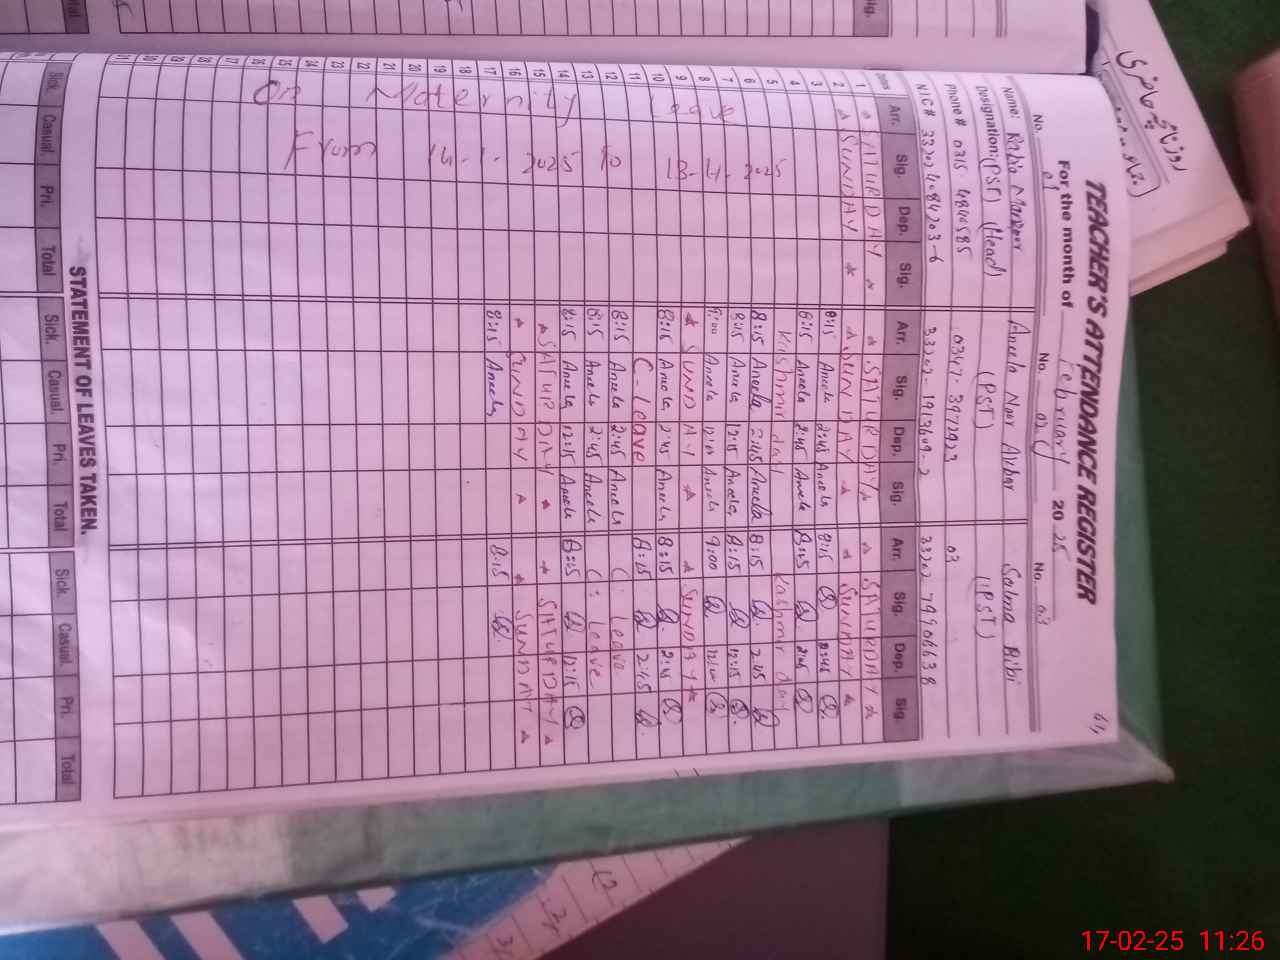 TEACHER'S ATTENDANCE REGISTER
For the month of February 2025
61,
No. 01 No. 02 No. 03
Name: Rabia Manzoor Aneela Noor Akbar Salma Bibi
Designation: (PST) (Head) (PST) (PST)
Phone # 0315-4840585 0347-3972923 03
NIC# 33202 4084203-6 33202-1913609-2 33202 7990663 8
Date Arr. Sig. Dep. Sig. Arr. Sig. Dep. Sig. Arr. Sig. Dep. Sig.
1 SATURDAY SATURDAY SATURDAY
2 SUNDAY SUNDAY SUNDAY
3 8:15 Aneela 2:45 Aneela 8:15 2:45
4 8:15 Aneela 2:45 Aneela 8:15 2:45
5 Kashmir day Kashmir day
6 8:15 Aneela 2:45 Aneela 8:15 2:45
7 8:15 Aneela 12:15 Aneela 8:15 12:15
8 9:00 Aneela 12:00 Aneela 9:00 12:00
9 SUNDAY SUNDAY
10 8:15 Aneela 2:45 Aneela 8:15 2:45
11 C-leave 8:15 2:45
12 8:15 Aneela 2:45 Aneela C: Leave
13 8:15 Aneela 2:45 Aneela C: Leave
14 8:15 Aneela 12:15 Aneela 8:15 12:15
15 SATURDAY SATURDAY
16 SUNDAY SUNDAY
17 8:15 Aneela 8:15
18
19
20
21
22
23
24
25
26
27
28
29
30
31
On Maternity Leave
From 14-1-2025 to 13-4-2025
STATEMENT OF LEAVES TAKEN.
Sick. Casual. Pri. Total Sick. Casual. Pri. Total Sick. Casual. Pri. Total
17-02-25 11:26